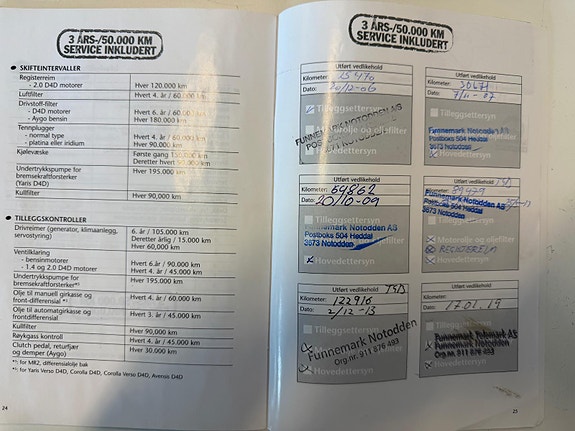 3 ÅRS-/50.000 KM
SERVICE INKLUDERT
SKIFTEINTERVALLER
Registerreim
- 2.0 D4D motorer Hver 120.000 km
Luftfilter Hvert 4. år / 60.000 km
Drivstoff-filter
- D4D motorer Hvert 6. år / 60.000 km
- Aygo bensin Hver 180.000 km
Tennplugger
- normal type Hvert 4. år / 60.000 km
- platina eller iridium Hver 90.000 km
Kjølevæske Første gang 150.000 km
Deretter hvert km
Undertrykkspumpe for Hver 195.000 km
bremsekraftforsterker
(Yaris D4D)
Kullfilter Hver 90,000 km
TILLEGGSKONTROLLER
Drivreimer (generator, klimaanlegg, 6. år / 105.000 km
servostyring) Deretter årlig / 15.000 km
Hver 60,000 km
Ventilklaring
- bensinmotorer Hvert 6.år / 90.000 km
- 1.4 og 2.0 D4D motorer Hvert 4. år / 45.000 km
Undertrykkspumpe for Hver 195.000 km
bremsekraftforsterker
Olje til manuell girkasse og Hvert 4. år / 60.000 km
front-differensial
Olje til automatgirkasse og Hvert 3. år / 45.000 km
frontdifferensial
Kullfilter Hver 90,000 km
Røykgass kontroll Hvert 4. år / 45.000 km
Clutch pedal, returfjær Hver 30.000 km
og demper (Aygo)
for MR2, differensialolje bak
for Yaris Verso D4D, Corolla D4D, Corolla Verso D4D, Avensis D4D
24
3 ÅRS-/50.000 KM
SERVICE INKLUDERT
Utført vedlikehold
Kilometer: 15470
Dato: 20/12-06
Tilleggsettersyn
FUNNEMARK NOTODDEN AS
Motorolje og oljefilter
Hovedettersyn
Utført vedlikehold
Kilometer: 30671
Dato: 7/11-07
Tilleggsettersyn
Funnemark Notodden AS
Postboks 504 Heddal
3673 Notodden
Hovedettersyn
Utført vedlikehold
Kilometer: 69862
Dato: 20/10-09
Tilleggsettersyn
Funnemark Notodden AS
Postboks 504 Heddal
3673 Notodden
Hovedettersyn
Utført vedlikehold
Kilometer:
Funnemark Notodden AS
Postboks 504 Heddal
3673 Notodden
Motorolje og oljefilter
REGISTERREIM
Hovedettersyn
Utført vedlikehold
Kilometer: 122916
2/12-13
Tilleggsettersyn
Funnemark Notodden
Org.nr. 911 876 493
Hovedettersyn
Utført vedlikehold
Kilometer:
17.01.19
Tilleggsettersyn
Funnemark Notodden
Org.nr. 911 876 493
Hovedettersyn
25